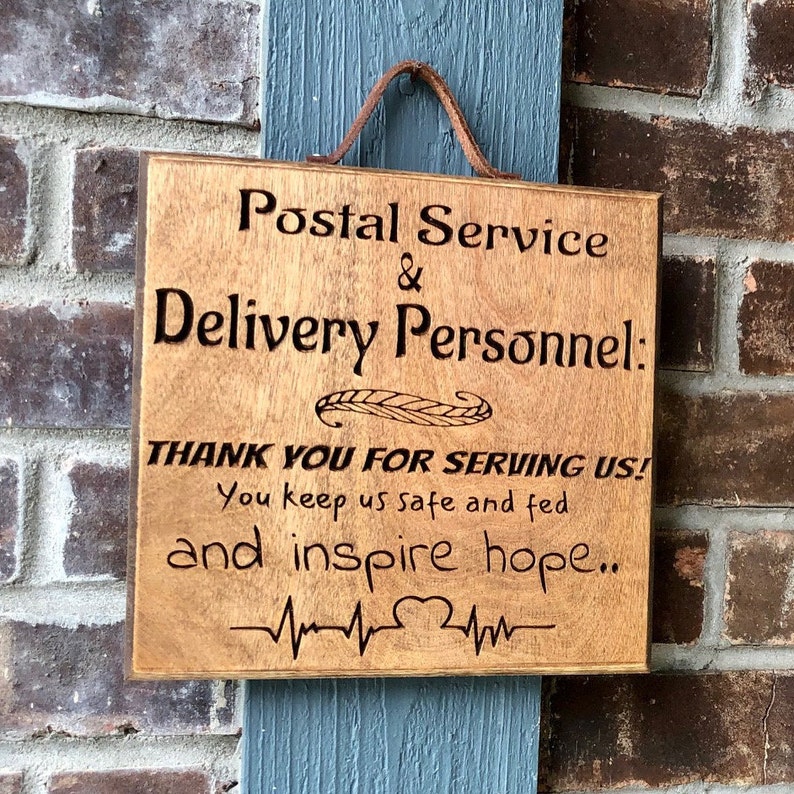 Postal Service
&
Delivery Personnel:
THANK YOU FOR SERVING US!
You keep us safe and fed
and inspire hope..